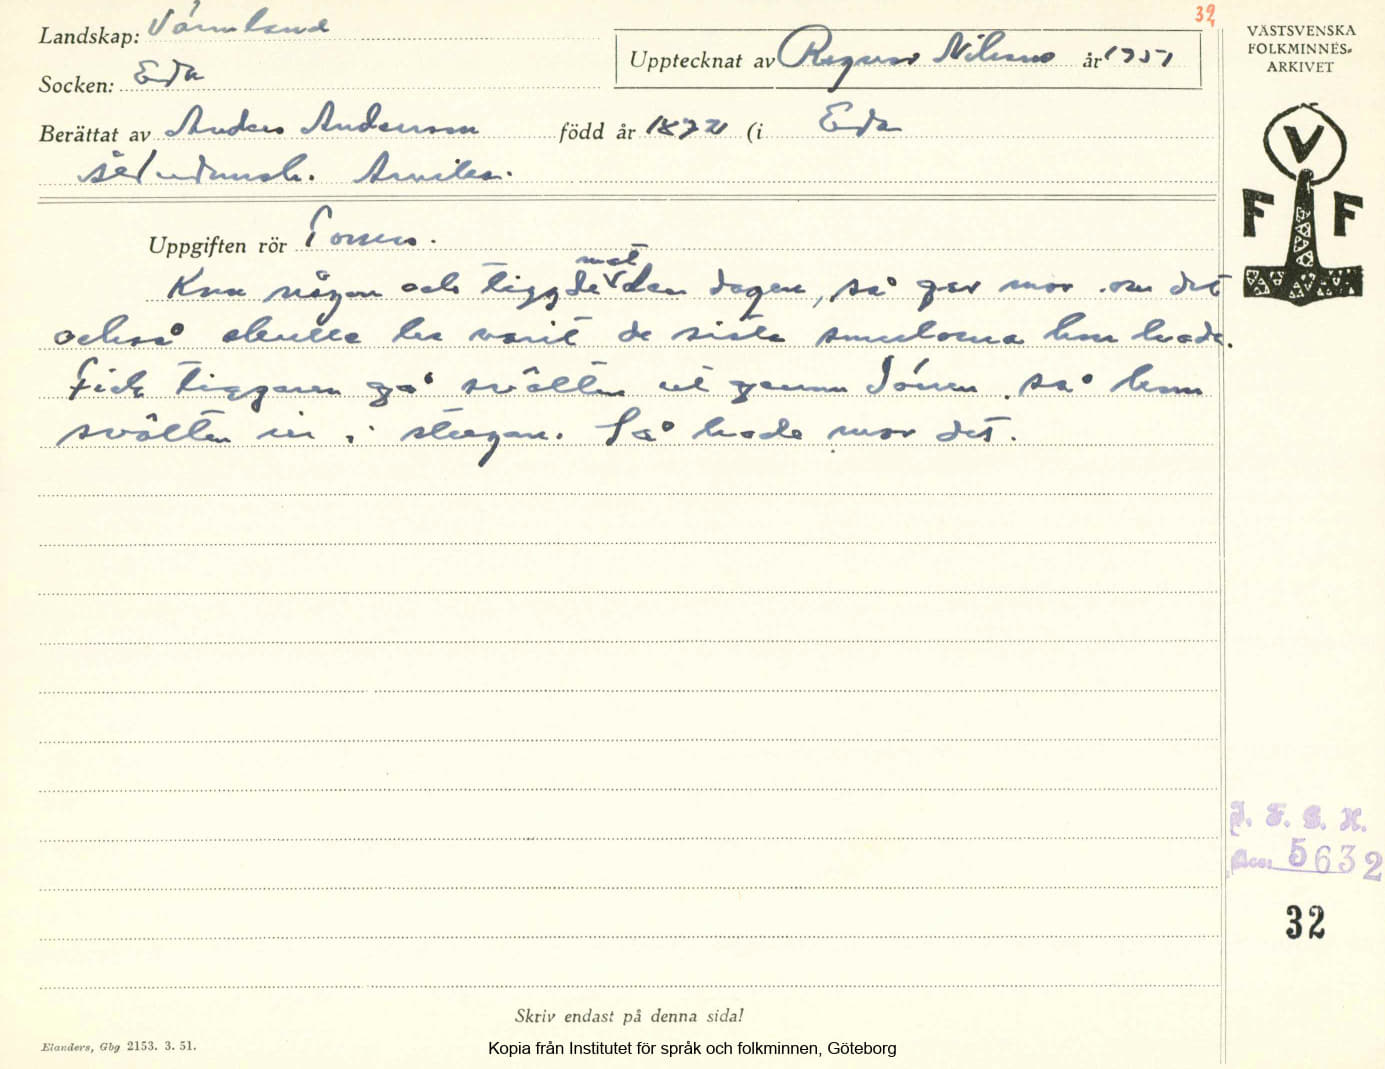 32
Landskap: Värmland
Socken: Eda
Upptecknat av Ragnar Nilsson år 1951
Berättat av Anders Andersson född år 1872 (i Eda
Arvika.
VÄSTSVENSKA
FOLKMINNES-
ARKIVET
V
F F
Uppgiften rör
mat
Kom någon och tiggde den dagen, så gav mor om det
också skulle ha varit de sista smulorna hon hade.
Fick tiggaren gå svälten ut genom dören, så kom
svälten in i stugan. Så hade mor det.
I. F. G. H.
Acc. 5632
32
Skriv endast på denna sida!
Elanders, Gbg 2153. 3. 51.
Kopia från Institutet för språk och folkminnen, Göteborg